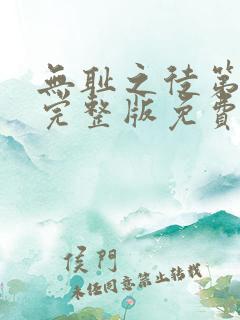 無耻之徒第
完整版免費
侯門
未经同意禁止转载